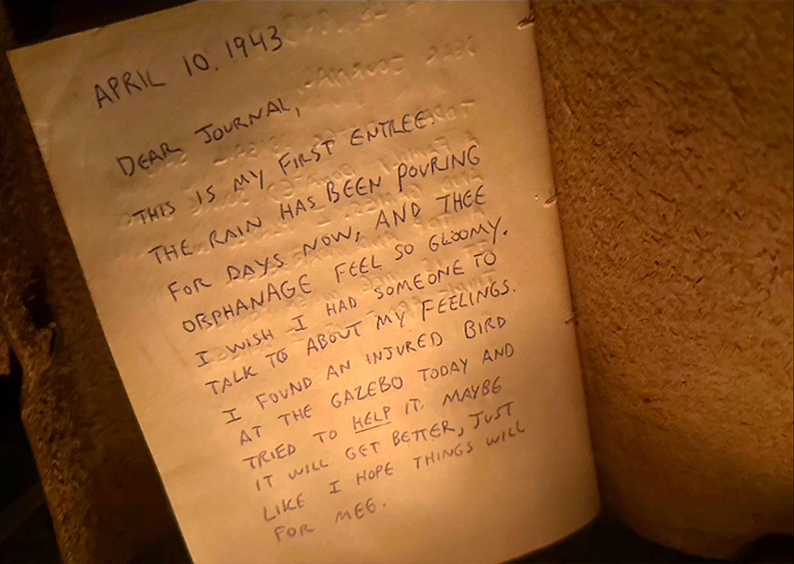 APRIL 10. 1943
DEAR JOURNAL,
THIS IS MY FIRST ENTREE.
THE RAIN HAS BEEN POURING
FOR DAYS NOW, AND THEE
ORPHANAGE FEEL SO GLOOMY.
I WISH I HAD SOMEONE TO
TALK TO ABOUT MY FEELINGS.
I FOUND AN INJURED BIRD
AT THE GAZEBO TODAY AND
TRIED TO HELP IT. MAYBE
IT WILL GET BETTER, JUST
LIKE I HOPE THINGS WILL
FOR MEE.